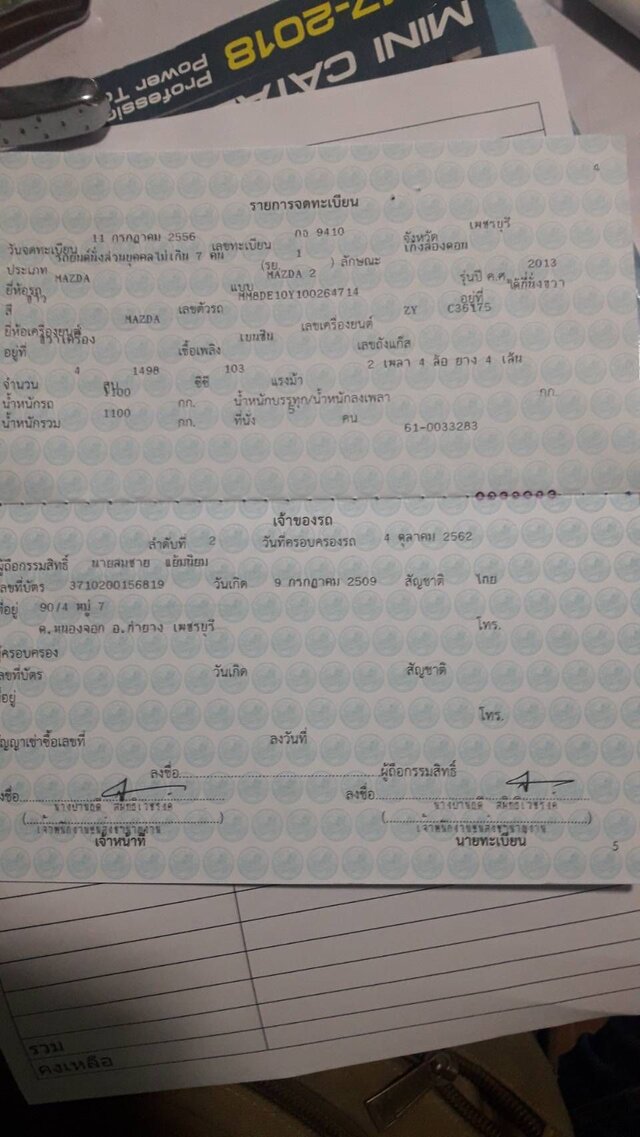 17-2018
MINI CATA
Professi
Power To
รายการจดทะเบียน
วันจดทะเบียน 11 กรกฎาคม 2556 เลขทะเบียน กอ 9410 จังหวัด เพชรบุรี
ประเภท รถยนต์นั่งส่วนบุคคลไม่เกิน 7 คน (รย. 1 ) ลักษณะ เก๋งสองตอน
ยี่ห้อรถ MAZDA แบบ MAZDA 2 รุ่นปี ค.ศ. 2013
สี ขาว เลขตัวรถ MM8DE10Y100264714 อยู่ที่ ใต้ที่นั่งขวา
ยี่ห้อเครื่องยนต์ MAZDA เลขเครื่องยนต์ ZY C36175
อยู่ที่ ขวาเครื่อง เชื้อเพลิง เบนซิน เลขถังแก๊ส
จำนวน 4 สูบ 1498 ซีซี 103 แรงม้า 2 เพลา 4 ล้อ ยาง 4 เส้น
น้ำหนักรถ 1100 กก. น้ำหนักบรรทุก/น้ำหนักลงเพลา กก.
น้ำหนักรวม 1100 กก. ที่นั่ง 5 คน
61-0033283
เจ้าของรถ
ลำดับที่ 2 วันที่ครอบครองรถ 4 ตุลาคม 2562
ผู้ถือกรรมสิทธิ์ นายสมชาย แย้มนิยม
เลขที่บัตร 3710200156819 วันเกิด 9 กรกฎาคม 2509 สัญชาติ ไทย
ที่อยู่ 90/4 หมู่ 7
ต.หนองจอก อ.ท่ายาง เพชรบุรี โทร.
ผู้ครอบครอง
เลขที่บัตร วันเกิด สัญชาติ
ที่อยู่
โทร.
สัญญาเช่าซื้อเลขที่ ลงวันที่
ลงชื่อ ผู้ถือกรรมสิทธิ์
ลงชื่อ ลงชื่อ
เจ้าพนักงานขนส่งชำนาญงาน เจ้าพนักงานขนส่งชำนาญงาน
เจ้าหน้าที่ นายทะเบียน
5
รวม
คงเหลือ